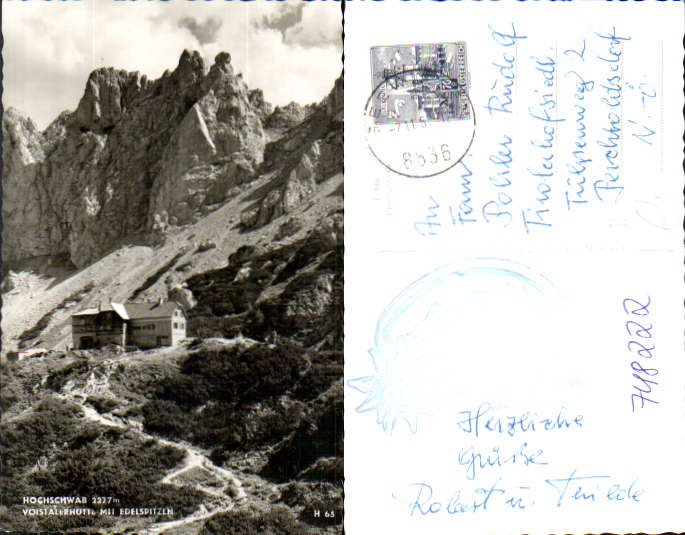 HOCHSCHWAB 2277m
VOISTALERHÜTTE MIT EDELSPITZEN
H 65
8636
An
Fam.
Rudolf
Tirolerhofsiedl.
Tulpenweg 2
Perchtoldsdorf
N.Ö.
748222
Herzliche
Grüße
Robert u. Trilde